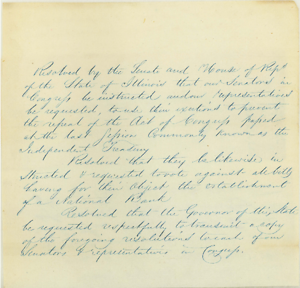 Resolved by the Senate and House of Rep's
of the State of Illinois that our Senators in
Congress be instructed and our representatives
be requested, to use their exertions to prevent
the repeal of the Act of Congress passed
at the last Session Commonly known as the
Independent Treasury
Resolved that they be likewise in
structed & requested to vote against all bills
having for their Object the establishment
of a National Bank
Resolved that the Governor of this State
be requested respectfully to transmit a copy
of the foregoing resolutions to each of our
Senators & representatives in Congress.